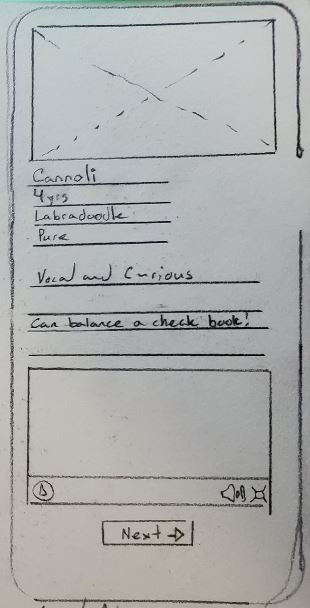 Cannoli
4 yrs
Labradoodle
Pure
Vocal and Curious
Can balance a check book!
Next